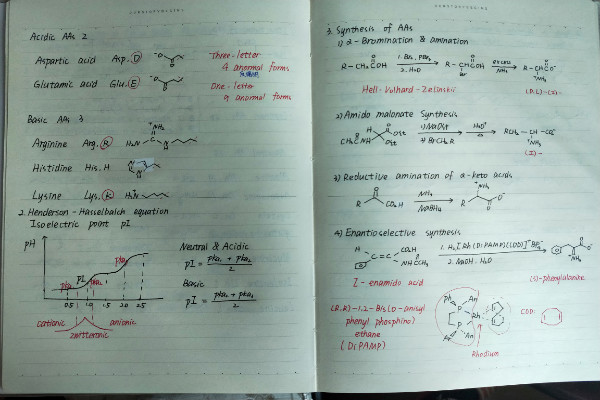 Acidic AAs 2
Aspartic acid Asp. D
Glutamic acid Glu. E
Three-letter
4 anormal forms
One-letter
9 anormal forms
Basic AAs 3
Arginine Arg. R
Histidine His. H
Lysine Lys. K
2. Henderson-Hasselbalch equation
Isoelectric point pI
pH
pI
pka₂
0.5 1.0 1.5 2.0 2.5
cationic anionic
zwitterionic
Neutral & Acidic
pI = pka₁ + pka₂ / 2
Basic
pI = pka₂ + pka₃ / 2
3. Synthesis of AAs
1) 2-Bromination & amination
R-CH₂COH
1. Br₂, PBr₃
2. H₂O
R-CHCOH
Br
NH₃
R-CHCO⁻
⁺NH₃
Hell-Volhard-Zelinskii
(D,L)-
2) Amido malonate Synthesis
1) NaOEt
2) BrCH₂R
H₃O⁺
RCH₂-CH-CO₂⁻
⁺NH₃
3) Reductive amination of α-keto acids
R CO₂H
NH₃
NaBH₄
R
NH₃
O⁻
4) Enantioselective synthesis
H C=C CO₂H
NHCCH₃
1. H₂[Rh(DiPAMP)(COD)]⁺BF₄⁻
2. NaOH, H₂O
Z-enamido acid
(S)-phenylalanine
(R,R)-1,2-Bis(o-anisyl
phenyl phosphino)
ethane
(DiPAMP)
Ph An
P
Rh
P
Ph An
Rhodium
COD: